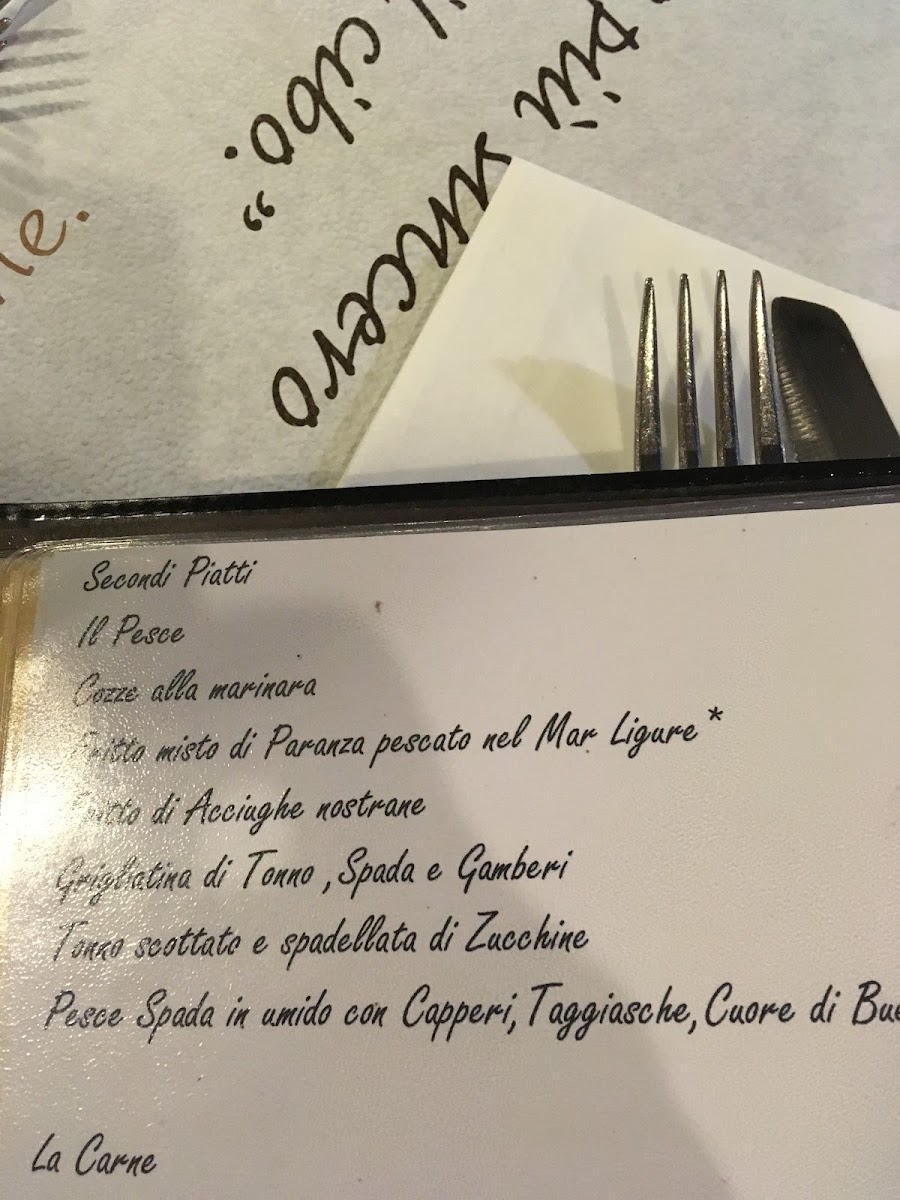 più
il cibo.”
sincero
Secondi Piatti
Il Pesce
Cozze alla marinara
Fritto misto di Paranza pescato nel Mar Ligure*
Fritto di Acciughe nostrane
Grigliatina di Tonno ,Spada e Gamberi
Tonno scottato e spadellata di Zucchine
Pesce Spada in umido con Capperi,Taggiasche,Cuore di Bue
La Carne